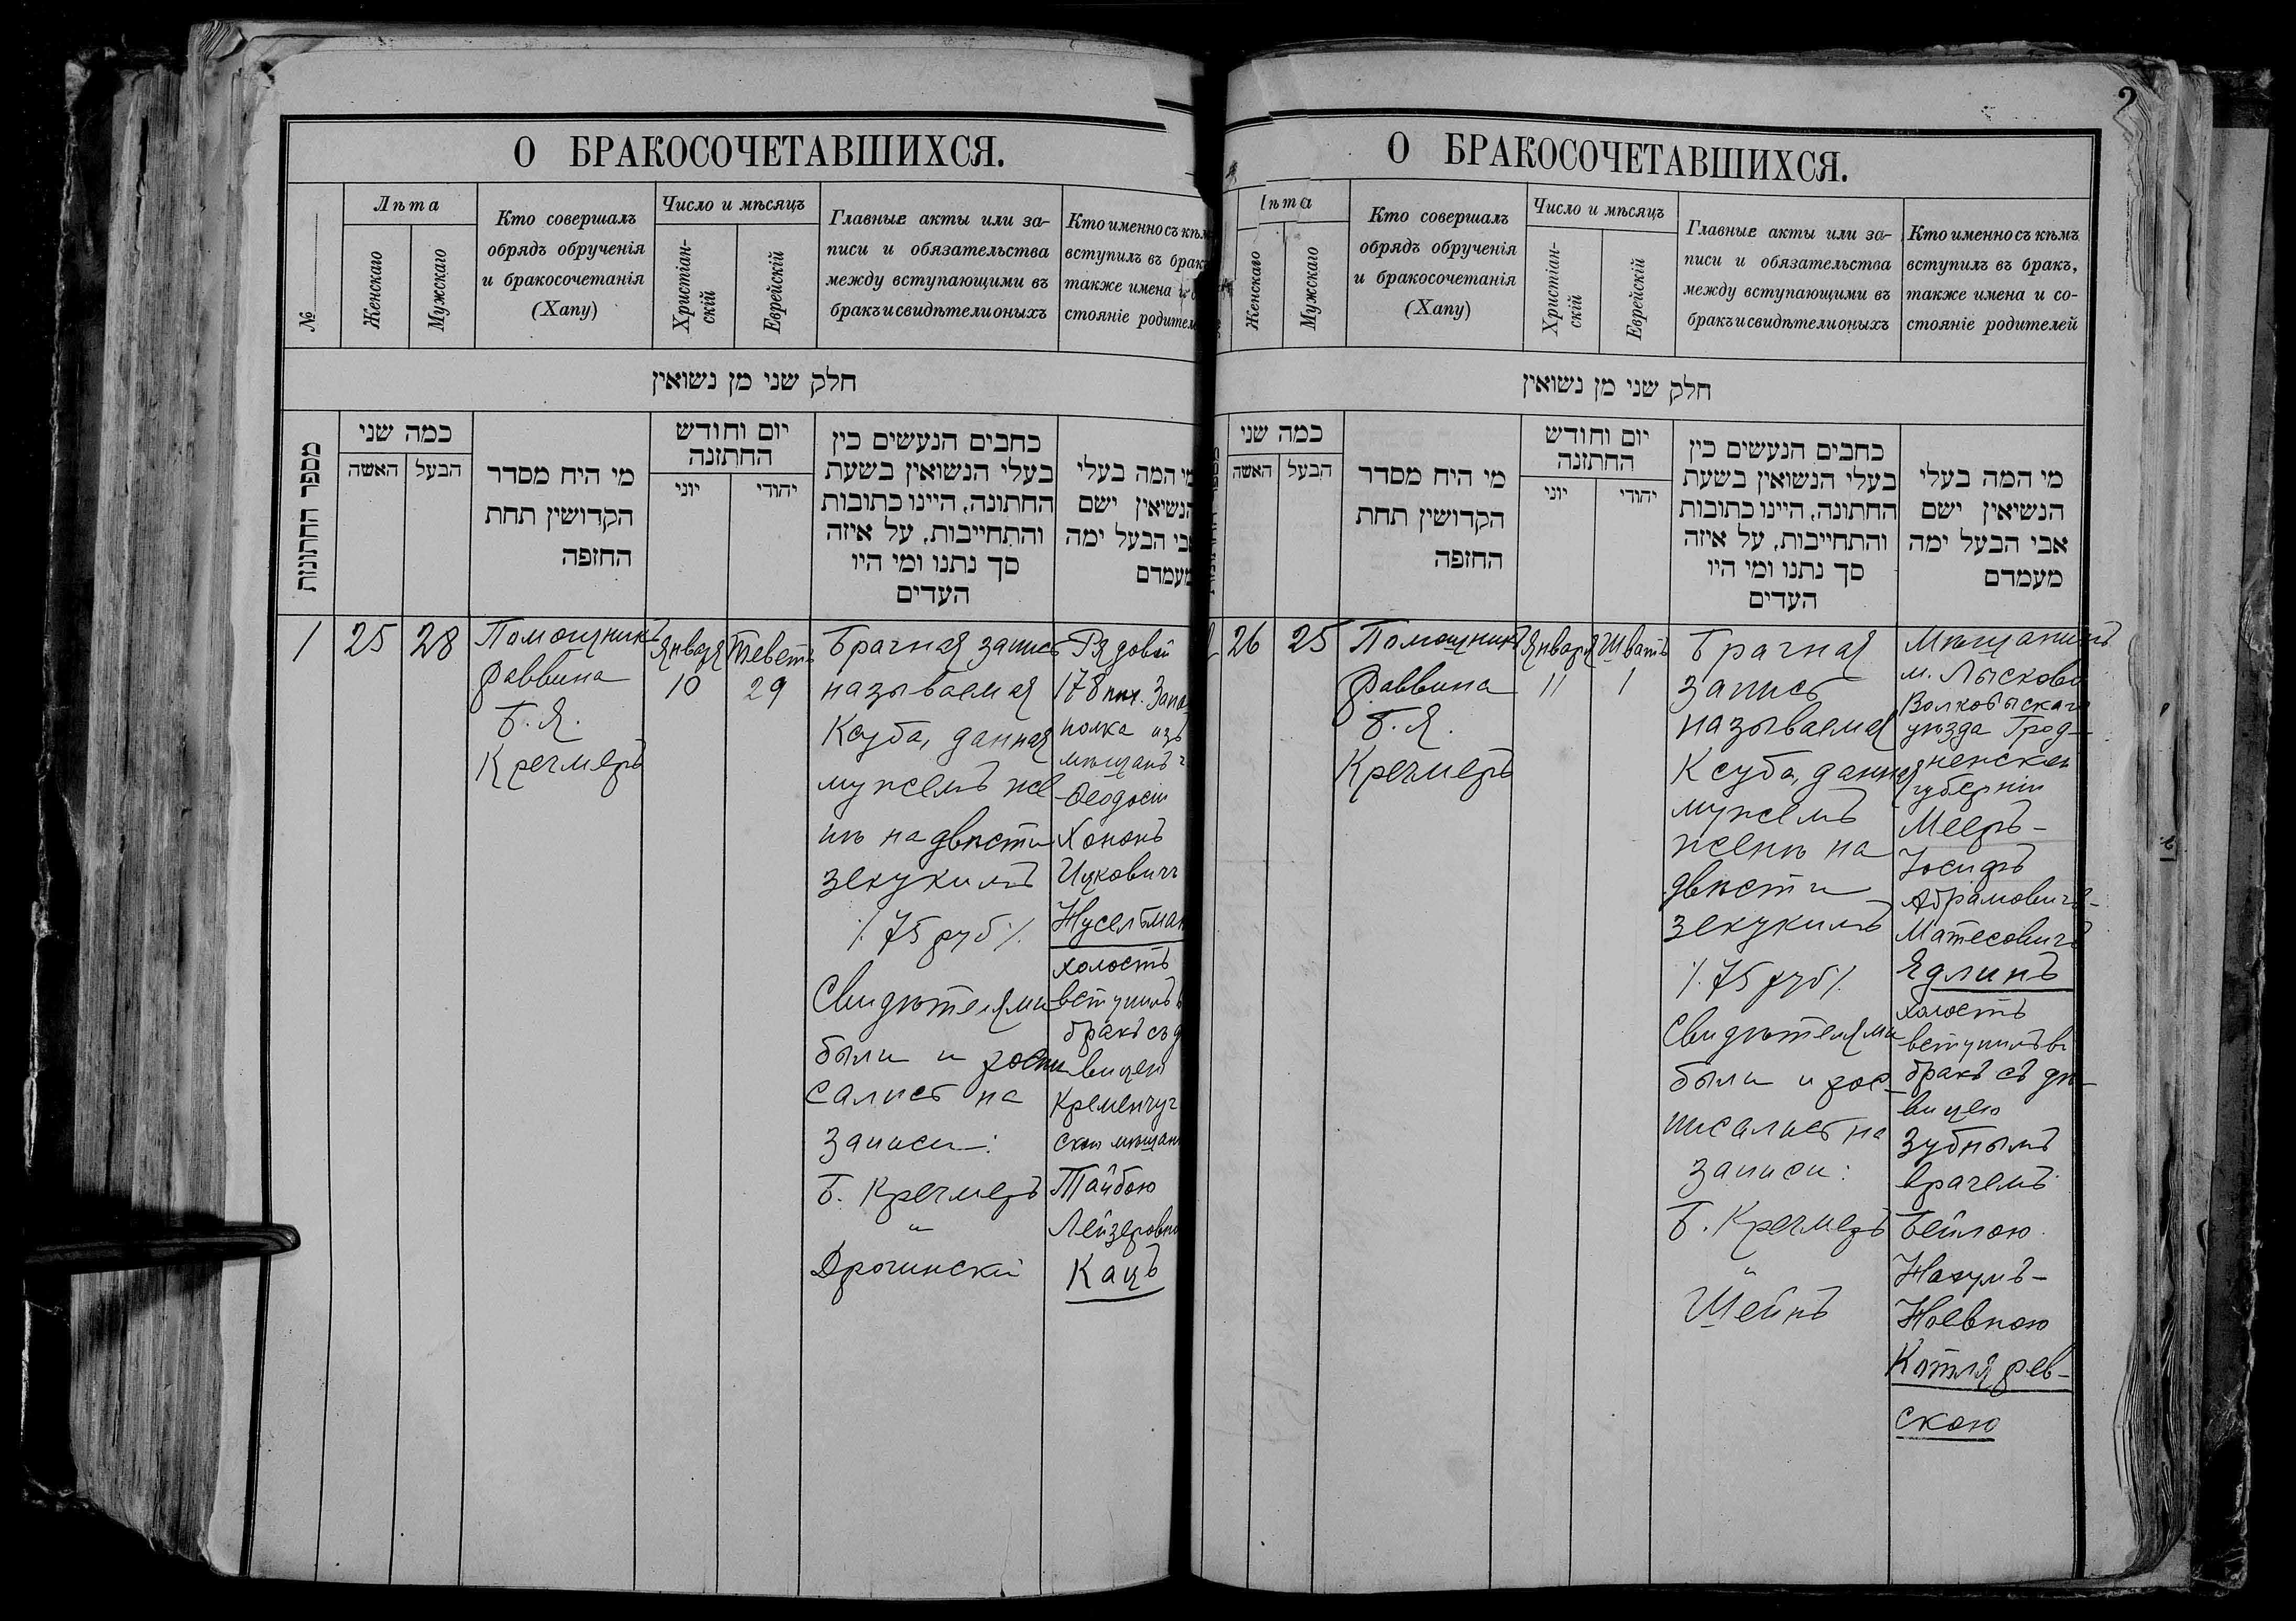 2
О БРАКОСОЧЕТАВШИХСЯ.
№
Лѣта
Женскаго
Мужскаго
Кто совершалъ
обрядъ обрученія
и бракосочетанія
(Хапу)
Число и мѣсяцъ
Христіан-
скій
Еврейскій
Главные акты или за-
писи и обязательства
между вступающими въ
бракъ и свидѣтели оныхъ
Кто именно съ кѣм
вступилъ въ брак
также имена и
стояніе родител
חלק שני מן נשואין
מספר החתונות
כמה שני
האשה
הבעל
מי היח מסדר
הקדושין תחת
החזפה
יום וחודש
החתזנה
יוני
יהודי
כחבים הנעשים כין
בעלי הנשואין בשעת
החתונה, היינו כתובות
והתחייבות, על איזה
סך נתנו ומי היו
העדים
מי המה בעלי
הנשיאין ישם
אבי הבעל ימה
מעמדם
1
25
28
Помощникъ
Раввина
Б. Я.
Кречмеръ
Января
10
Тевета
29
Брачная запись
называемая
Ксуба, данная
мужемъ же
нѣ на двѣсти
зекукимъ
/. 75 руб /.
Свидѣтелями
были и роспи
сались на
записи:
Б. Кречмеръ
и
Дрогинскій
Рядовой
178 пех. Запа
полка изъ
мѣщанъ г
Ѳеодосіи
Хононъ
Ицковичъ
Нусельман
холостъ
вступилъ в
бракъ съ д
вицею
Кременчуг
ской мѣщан
Тайбою
Лейзеровно
Кацъ
О БРАКОСОЧЕТАВШИХСЯ.
ѣта
Женскаго
Мужскаго
Кто совершалъ
обрядъ обрученія
и бракосочетанія
(Хапу)
Число и мѣсяцъ
Христіан-
скій
Еврейскій
Главные акты или за-
писи и обязательства
между вступающими въ
бракъ и свидѣтели оныхъ
Кто именно съ кѣмъ
вступилъ въ бракъ,
также имена и со-
стояніе родителей
חלק שני מן נשואין
כמה שני
האשה
הבעל
מי היח מסדר
הקדושין תחת
החזפה
יום וחודש
החתזנה
יוני
יהודי
כחבים הנעשים כין
בעלי הנשואין בשעת
החתונה, היינו כתובות
והתחייבות, על איזה
סך נתנו ומי היו
העדים
מי המה בעלי
הנשיאין ישם
אבי הבעל ימה
מעמדם
26
25
Помощникъ
Раввина
Б. Я.
Кречмеръ
Января
11
Шватъ
1
Брачная
запись
называемая
Ксуба, данная
мужемъ
женѣ на
двѣсти
зекукимъ
/. 75 руб /.
Свидѣтелями
были и рос-
писались на
записи:
Б. Кречмеръ
и
Шейнъ
Мѣщанинъ
м. Лысково
Волковыскаго
уѣзда Грод-
ненской
губерніи
Мееръ-
Іосифъ
Абрамовичъ-
Матесовичъ
Ядлинъ
холостъ
вступилъ въ
бракъ съ дѣ-
вицею
Зубнымъ
врачемъ
Бейлою
Нахумъ-
Ноевною
Котляров-
скою